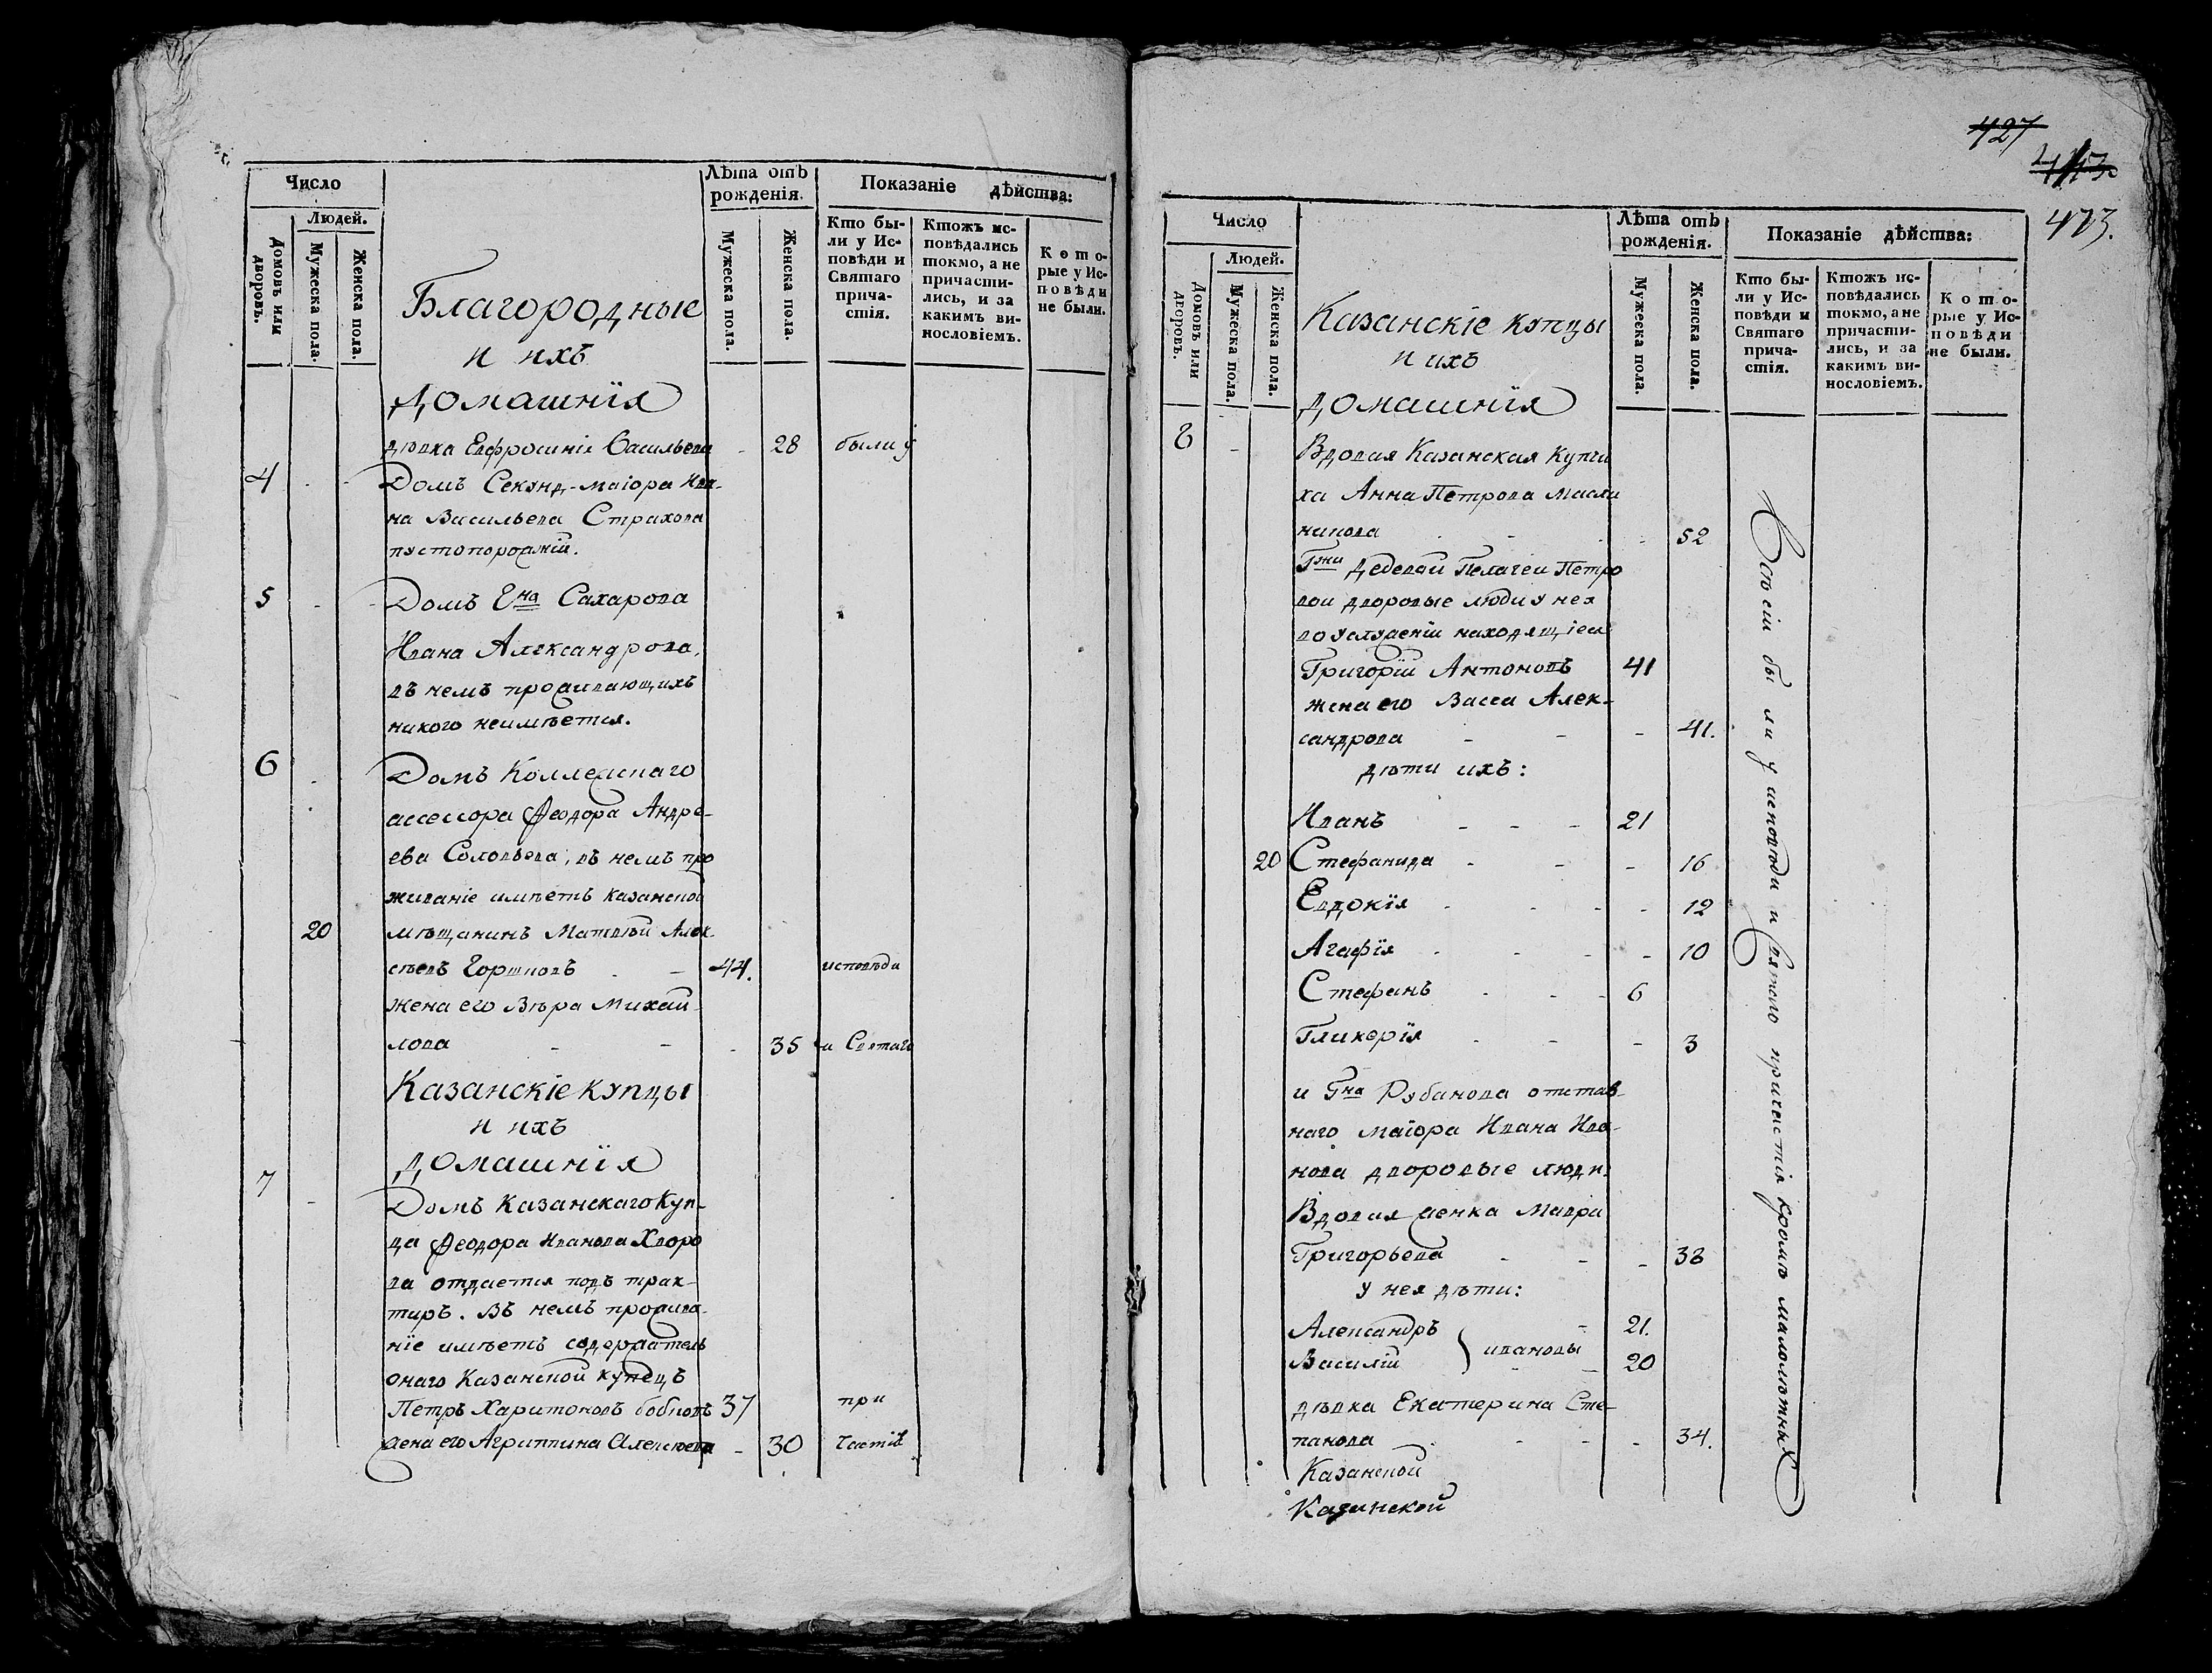 Число
Людей.
Домовъ или дворовъ.
Мужеска пола.
Женска пола.
Лѣта отъ рожденія.
Мужеска пола.
Женска пола.
Показаніе дѣйства:
Кто бы-
ли у Ис-
повѣди и
Святаго
прича-
стія.
Ктожъ ис-
повѣдались
токмо, а не
причасти-
лись, и за
какимъ ви-
нословіемъ.
Кото-
рые у Ис-
повѣди
не были.
Благородные
и ихъ
домашнія
дѣвка Евфросинія Васильева - 28 были у
4 - - Домъ Секунд-маіора Ива-
на Васильева Страхова
пустопорожній.
5 - - Домъ Г.на Сахарова
Ивана Александрова,
въ немъ проживающихъ
никого неимѣется.
6 - Домъ Коллежскаго
ассессора Феодора Андре-
ева Соловьева, въ немъ про
живаніе имѣетъ казанской
20 мѣщанинъ Матвѣй Алек-
сѣевъ Горшковъ - - 44. исповѣди
жена его Вѣра Михай-
лова - - - 35 и Святаго
Казанскіе купцы
и ихъ
домашнія
7 - Домъ Казанскаго Куп-
ца Феодора Иванова Хворо
ва отдается подъ трак-
тиръ. Въ немъ прожива-
ніе имѣетъ содержатель
онаго Казанской купецъ
Петръ Харитоновъ Бобковъ 37 при
жена его Агриппина Алексѣева - 30 частія
427
413.
413.
Число
Людей.
Домовъ или дворовъ.
Мужеска пола.
Женска пола.
Лѣта отъ рожденія.
Мужеска пола.
Женска пола.
Показаніе дѣйства:
Кто бы-
ли у Ис-
повѣди и
Святаго
прича-
стія.
Ктожъ ис-
повѣдались
токмо, а не
причасти-
лись, и за
какимъ ви-
нословіемъ.
Кото-
рые у Ис-
повѣди
не были.
Казанскіе купцы
и ихъ
домашнія
8 - Вдовая Казанская Купчи
ха Анна Петрова Масля
никова - - - 52
Г.жи Дебевой Пелагеи Петро
вой дворовые люди у нея
во услуженіи находящіеся
Григорій Антоновъ 41
жена его Васса Алек-
сандрова - - - 41.
дѣти ихъ:
Иванъ - - - 21
20 Стефанида - - - 16
Евдокія - - - - 12
Агафія - - - - 10
Стефанъ - - - 6
Гликерія - - - 3
и Г.на Рубанова отстав-
наго маіора Ивана Ива-
нова дворовые люди:
Вдовая женка Мавра
Григорьева - - - 38
у нея дѣти:
Александръ - 21.
Василій } ивановы - - 20
дѣвка Екатерина Сте-
панова - - - 34.
Казанской
Казанской
Всѣ сіи были у исповѣди и святаго причастія кромѣ малолѣтныхъ